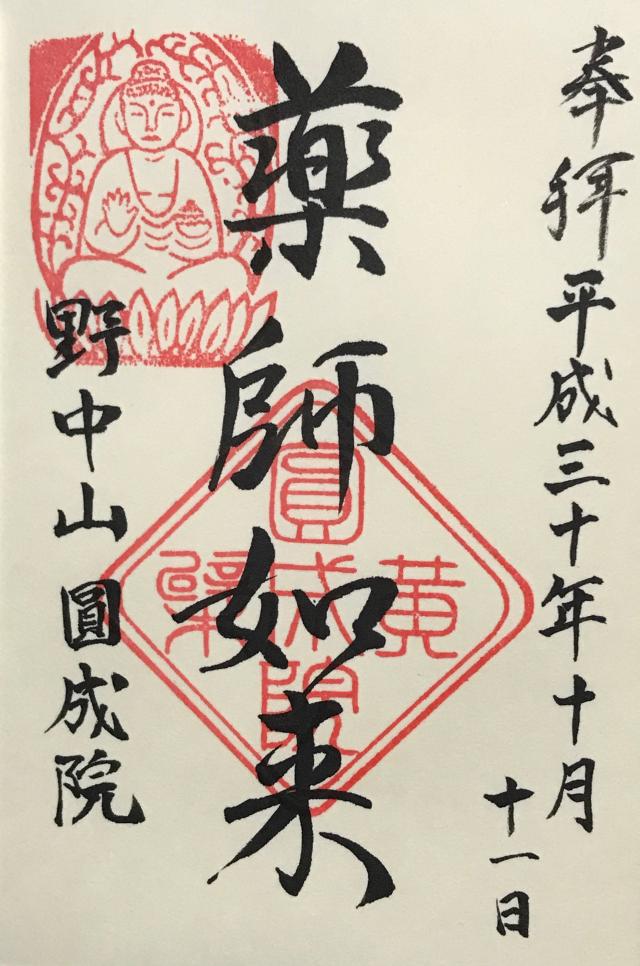 奉拝 平成三十年十月
十一日
薬師如来
野中山 圓成院
黄檗
圓成院